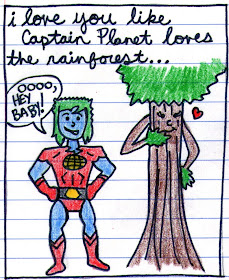 i love you like
Captain Planet loves
the rainforest...
OOOO,
HEY
BABY!